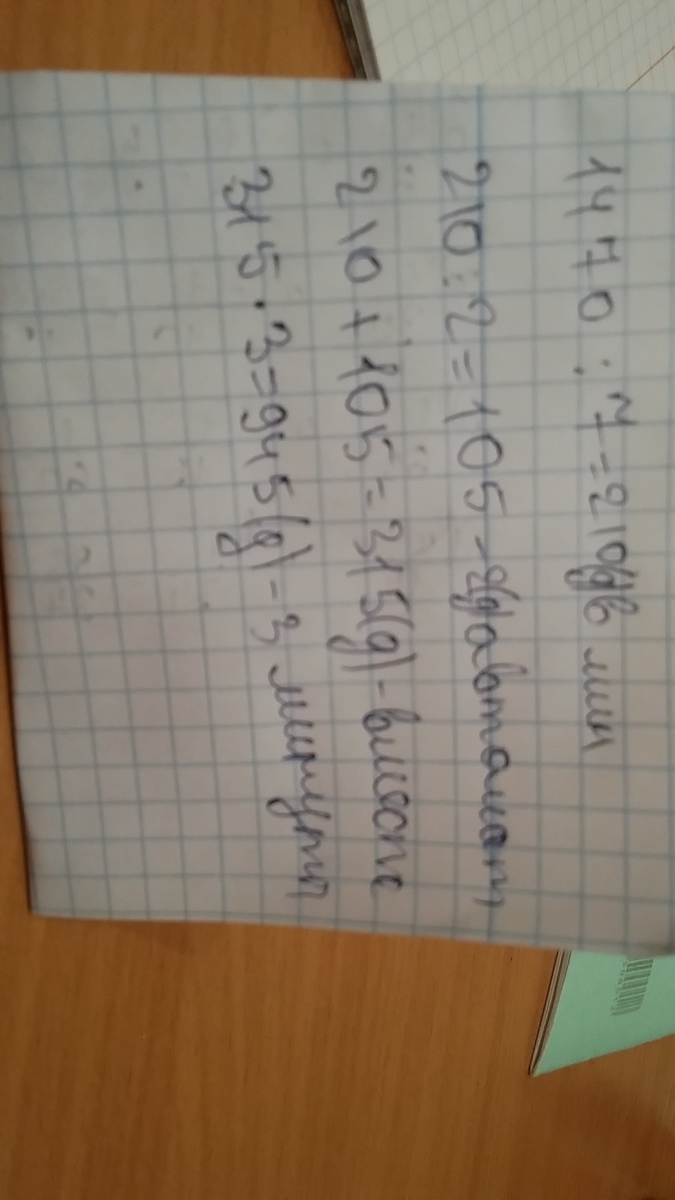 1470 : 7 = 210(д) в мин
210 : 2 = 105 - 2(д) автомат
210 + 105 = 315(д) - вместе
315 · 3 = 945(д) - 3 минуты